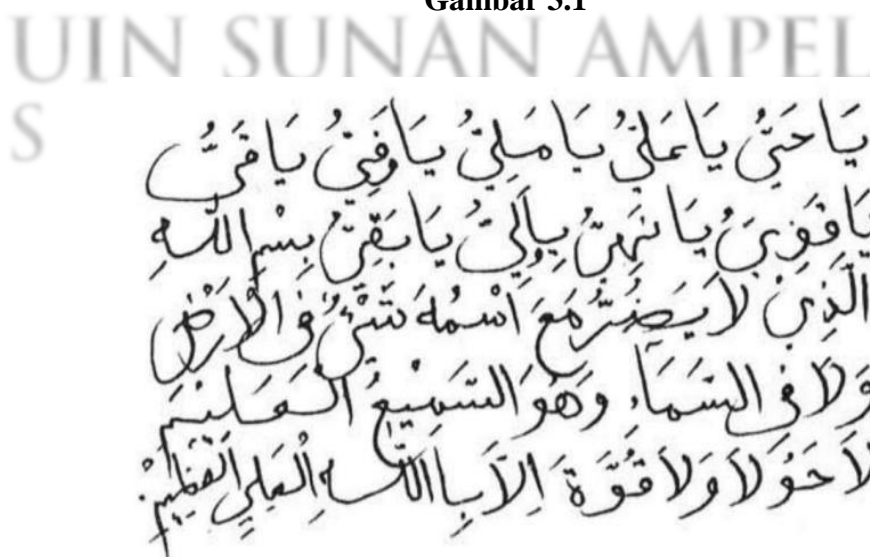 Gambar 3.1
UIN SUNAN AMPEL
S
يَا حَيُّ يَا عَلِيُّ يَا مَلِيُّ يَا وَفِيُّ يَا قَرِيُّ
يَا قَوِيُّ يَا يَا بَقِيُّ بِسْمِ اللّٰهِ
الَّذِي لَا يَضُرُّ مَعَ اسْمُهُ شَيْئٌ فِى الْاَرْضِ
وَلَا فِى السَّمَاءِ وَهُوَ السَّمِيْعُ الْعَلِيْمُ
لَا حَوْلَا وَلَا قُوَّةَ اِلَّا بِا اللّٰهِ الْعَلِيِ الْعَظِيْمْ